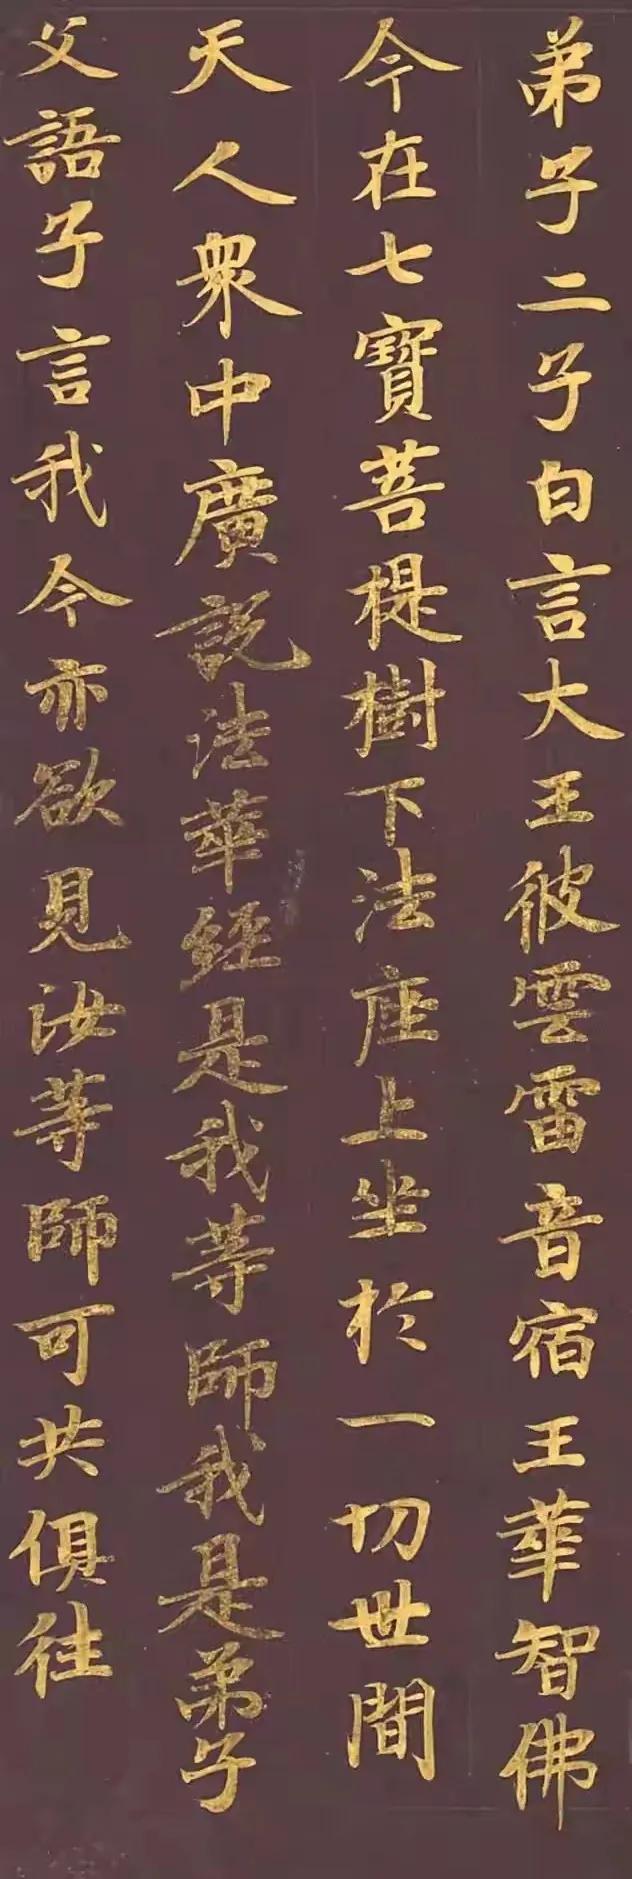 弟子二子白言大王彼雲雷音宿王華智佛
今在七寶菩提樹下法座上坐於一切世間
天人衆中廣說法華經是我等師我是弟子
父語子言我今亦欲見汝等師可共俱往